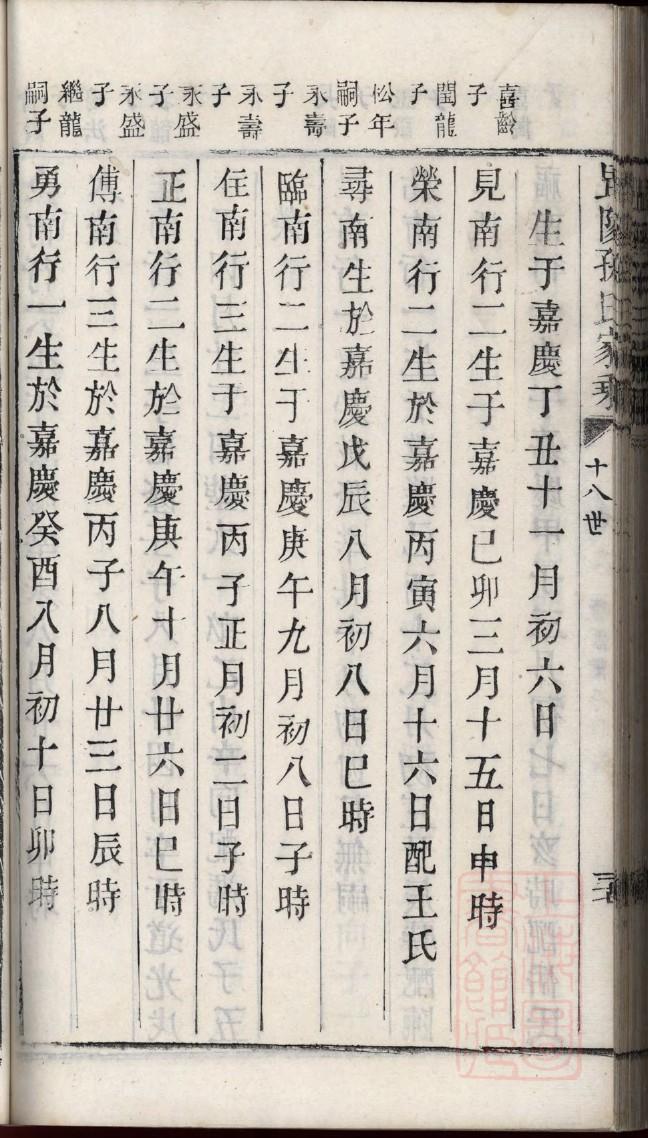 毘陵孫氏家乘
十八世
生于嘉慶丁丑十一月初六日
喜齡子
見南行二生于嘉慶己卯三月十五日申時
閏龍子
榮南行二生於嘉慶丙寅六月十六日配王氏
松年嗣子
尋南生於嘉慶戊辰八月初八日巳時
永壽子
臨南行二生于嘉慶庚午九月初八日子時
永壽子
任南行三生于嘉慶丙子正月初二日子時
永盛子
正南行二生於嘉慶庚午十月廿六日巳時
永盛子
傅南行三生於嘉慶丙子八月廿三日辰時
繼龍嗣子
勇南行一生於嘉慶癸酉八月初十日卯時